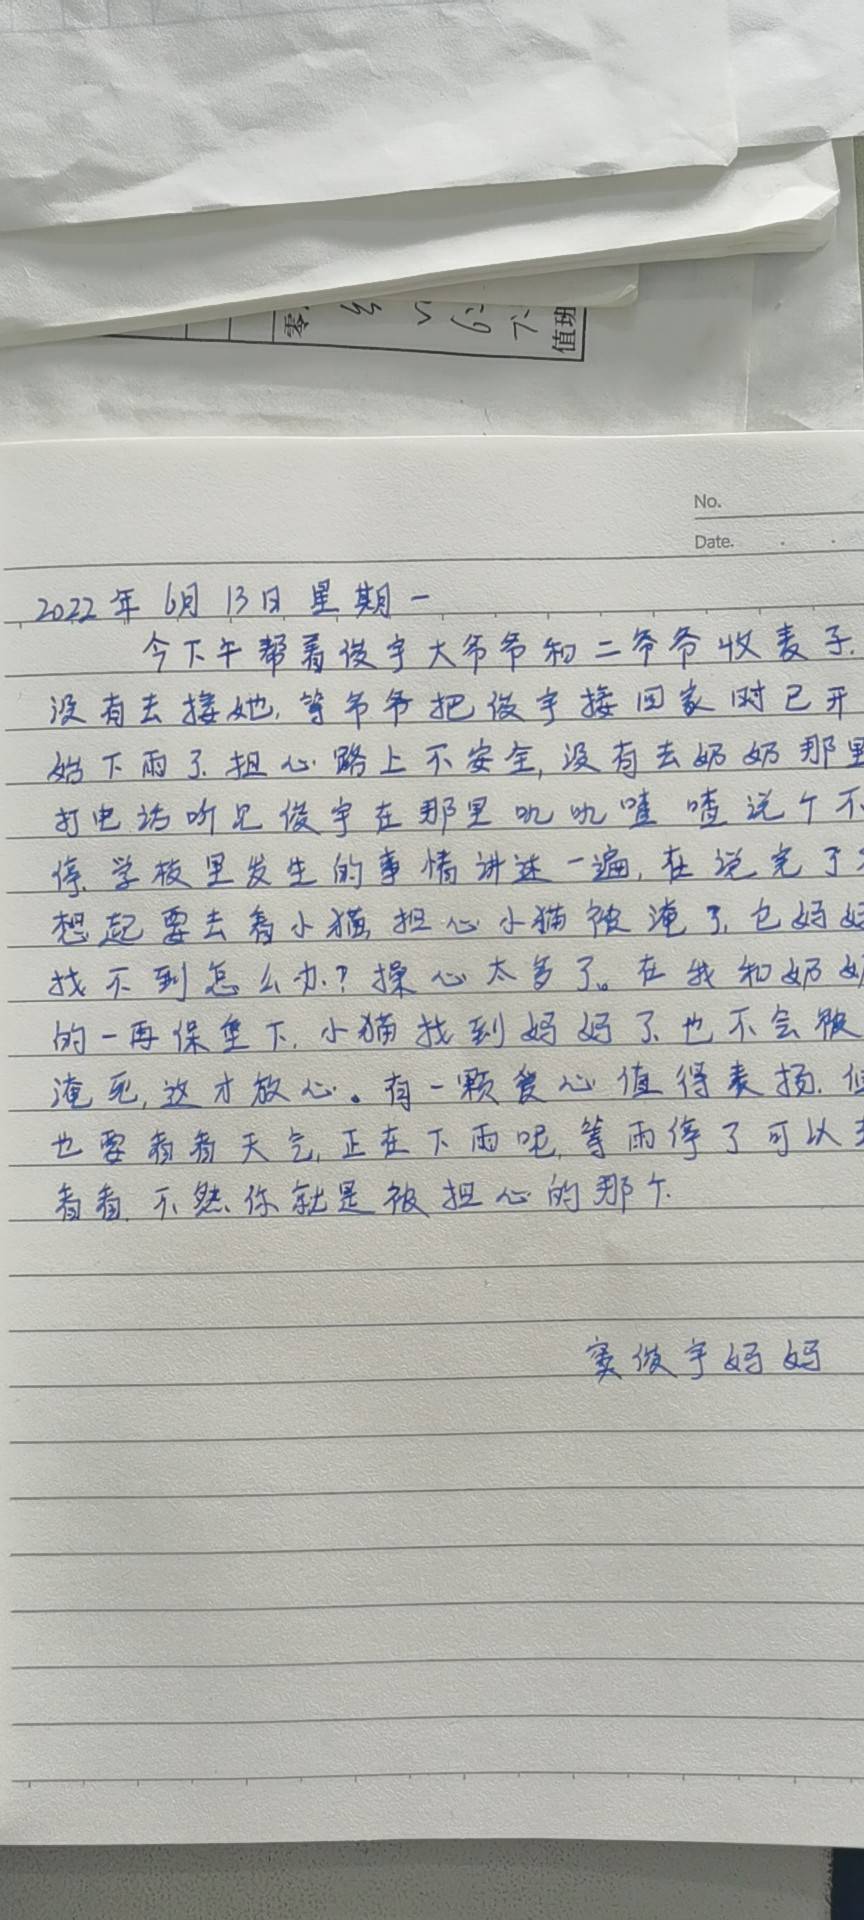 零
值班
No.
Date.
2022年 6月 13日 星期一
今下午帮着俊宇大爷爷和二爷爷收麦子.
没有去接她,等爷爷把俊宇接回家时已开
始下雨了.担心路上不安全,没有去奶奶那里
打电话听见俊宇在那里叽叽喳喳说个不
停.学校里发生的事情讲述一遍,在说完了
想起要去看小猫,担心小猫被淹了,它妈妈
找不到怎么办?操心太多了。在我和奶奶
的一再保垒下,小猫找到妈妈了,也不会被
淹死,这才放心。有一颗爱心值得表扬.但
也要看看天气,正在下雨呢,等雨停了可以去
看看,不然你就是被担心的那个.
窦俊宇妈妈